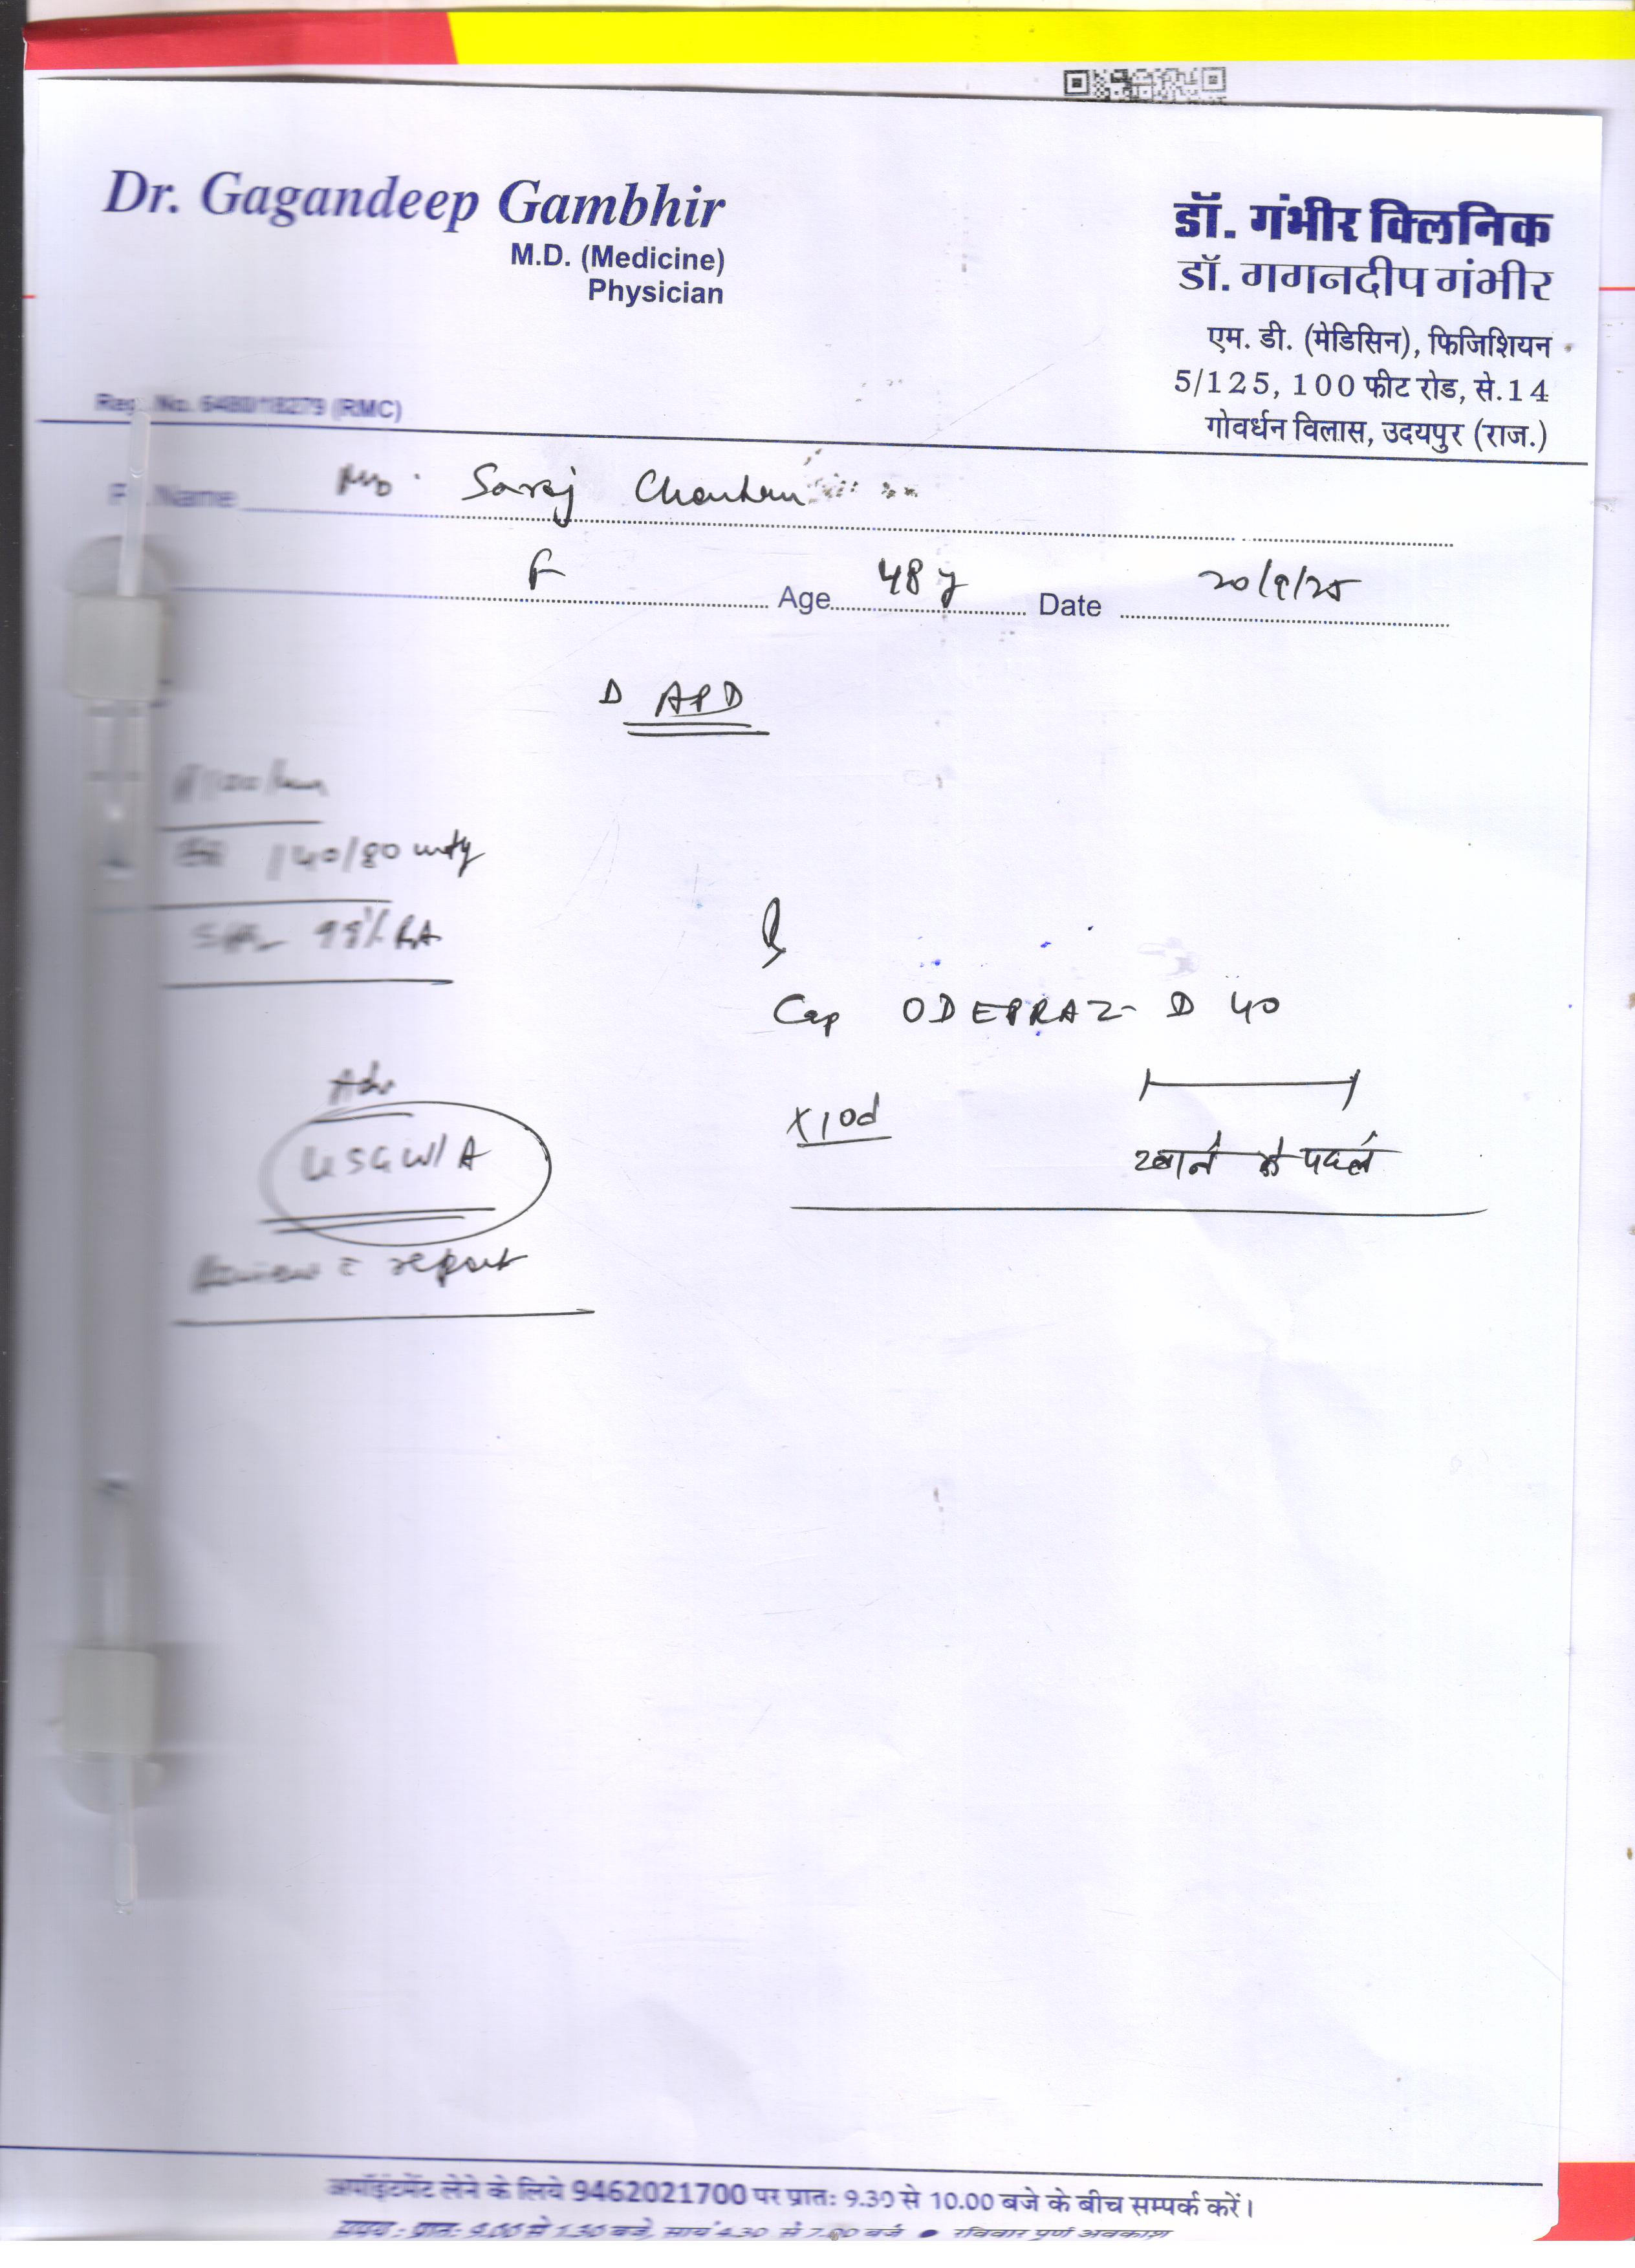 Dr. Gagandeep Gambhir
M.D. (Medicine)
Physician
डॉ. गंभीर क्लिनिक
डॉ. गगनदीप गंभीर
एम. डी. (मेडिसिन), फिजिशियन
5/125, 100 फीट रोड, से.14
गोवर्धन विलास, उदयपुर (राज.)
No. (RMC)
Name Saroj Chouhan
F Age 48 y Date 20/9/25
D APD
140/80 mmHg
99% RA
Cap ODEPRAZ- D 40
x10d
खाने से पहले
Adv
USG W/A
Review c report
अपॉइंटमेंट लेने के लिये 9462021700 पर प्रातः 9.30 से 10.00 बजे के बीच सम्पर्क करें।
समय : प्रातः 9.00 से 1.30 बजे, सायं 4.30 से 7.00 बजे ● रविवार पूर्ण अवकाश